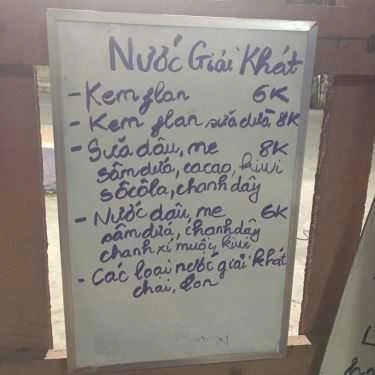 Nước Giải Khát
- Kem flan 6K
- Kem flan sữa dừa 8K
- Sữa dâu, me 8K
sâm dứa, cacao, kiwi
sôcôla, chanh dây
- Nước dâu, me 6K
sâm dứa, chanh dây
chanh xí muội, kiwi
- Các loại nước giải khát
chai, lon